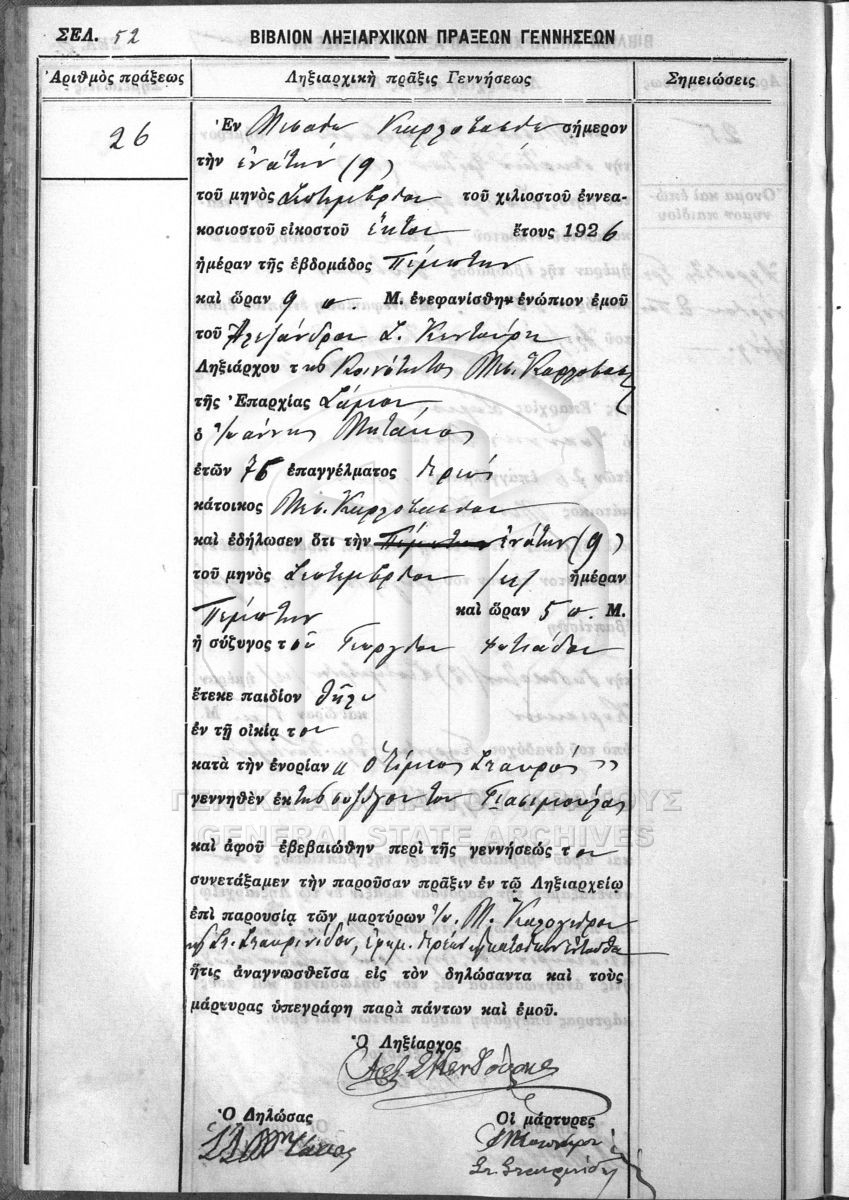 ΣΕΛ. 52
ΒΙΒΛΙΟΝ ΛΗΞΙΑΡΧΙΚΩΝ ΠΡΑΞΕΩΝ ΓΕΝΝΗΣΕΩΝ
Ἀριθμὸς πράξεως
Ληξιαρχικὴ πρᾶξις Γεννήσεως
Σημειώσεις
26
Ἐν Μεσαίῳ Καρλοβασίῳ σήμερον
τὴν ἐνάτην (9)
τοῦ μηνὸς Σεπτεμβρίου τοῦ χιλιοστοῦ ἐννεα-
κοσιοστοῦ εἰκοστοῦ ἕκτου ἔτους 1926
ἡμέραν τῆς ἑβδομάδος Πέμπτην
καὶ ὥραν 9 π. Μ. ἐνεφανίσθη ἐνώπιον ἐμοῦ
τοῦ Ἀλεξάνδρου Σ.
Ληξιάρχου τῆς Κοινότητος Μεσ. Καρλοβασίου
τῆς Ἐπαρχίας Σάμου
ὁ Ἰωάννης
ἐτῶν 75 ἐπαγγέλματος
κάτοικος Μεσ. Καρλοβασίου
καὶ ἐδήλωσεν ὅτι τὴν Πέμπτην ἐνάτην (9)
τοῦ μηνὸς Σεπτεμβρίου ἡμέραν
Πέμπτην καὶ ὥραν 5 π. Μ.
ἡ σύζυγος τοῦ Γεωργίου Φωτιάδου
ἔτεκε παιδίον θῆλυ
ἐν τῇ οἰκίᾳ του
κατὰ τὴν ἐνορίαν « Ὁ Τίμιος Σταυρός »
γεννηθὲν ἐκ τῆς συζύγου του
καὶ ἀφοῦ ἐβεβαιώθην περὶ τῆς γεννήσεώς του
συνετάξαμεν τὴν παροῦσαν πρᾶξιν ἐν τῷ Ληξιαρχείῳ
ἐπὶ παρουσίᾳ τῶν μαρτύρων Μ.
Στ. Σταυρινίδου,
ἥτις ἀναγνωσθεῖσα εἰς τὸν δηλώσαντα καὶ τοὺς
μάρτυρας ὑπεγράφη παρὰ πάντων καὶ ἐμοῦ.
Ὁ Ληξίαρχος
Ὁ Δηλώσας
Οἱ μάρτυρες
Στ. Σταυρινίδης
ΓΕΝΙΚΑ ΑΡΧΕΙΑ ΤΟΥ ΚΡΑΤΟΥΣ
GENERAL STATE ARCHIVES